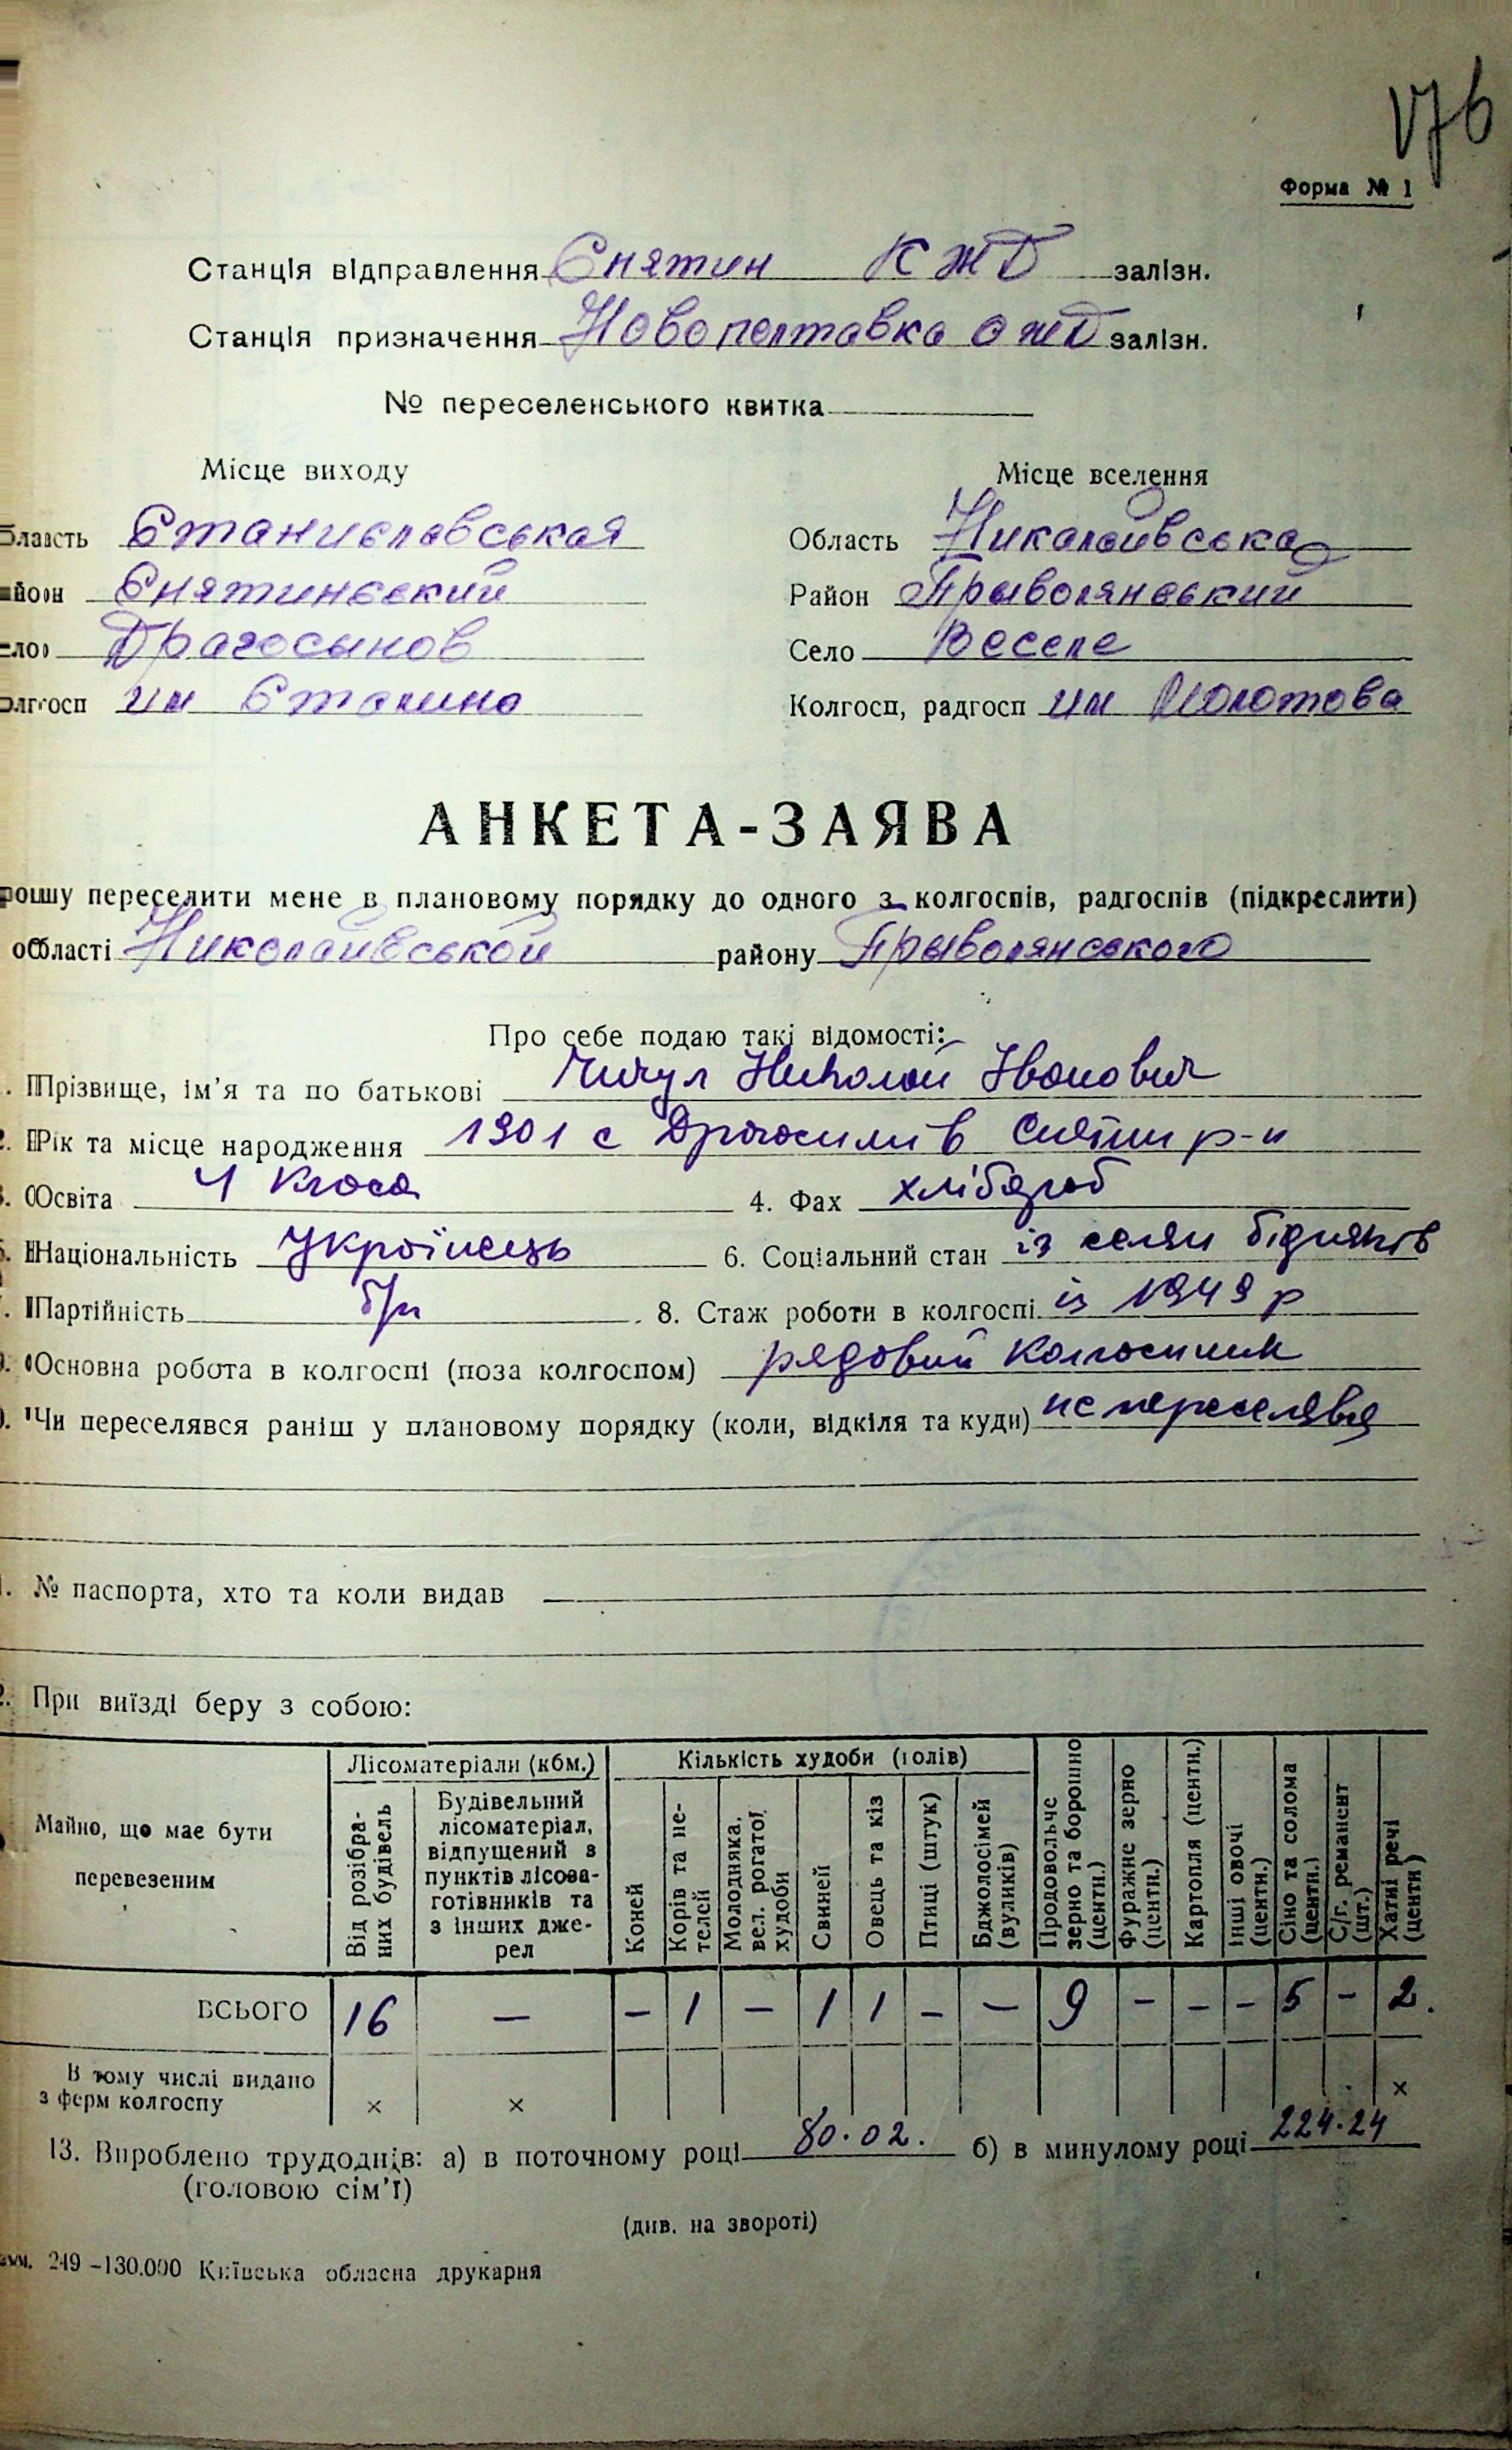 176
Форма № 1
Станція відправлення Снятин КЖД залізн.
Станція призначення Новополтавка ОЖД залізн.
№ переселенського квитка
Місце виходу
Місце вселення
бласть Станиславськая
Область Николаивська
йон Снятинський
Район Прыволянський
ело Драгосынов
Село Веселе
олгосп им Сталина
Колгосп, радгосп им Молотова
АНКЕТА-ЗАЯВА
рошу переселити мене в плановому порядку до одного з колгоспів, радгоспів (підкреслити)
області Николаивськой району Прыволянського
Про себе подаю такі відомості:
. Прізвище, ім'я та по батькові Николай Іванович
. Рік та місце народження 1901 с Драгосимів Снятин р-н
. Освіта 4 Класа 4. Фах хлібороб
. Національність Українець 6. Соціальний стан із селян бідняків
. Партійність б/п 8. Стаж роботи в колгоспі із 1949 р
. Основна робота в колгоспі (поза колгоспом) рядовий Колгоспник
. Чи переселявся раніш у плановому порядку (коли, відкіля та куди) не переселявся
. № паспорта, хто та коли видав
. При виїзді беру з собою:
Майно, що має бути перевезеним
Лісоматеріали (кбм.)
Від розібраних будівель
Будівельний лісоматеріал, відпущений з пунктів лісозаготівників та з інших джерел
Кількість худоби (голів)
Коней
Корів та нетелей
Молодняка, вел. рогатої худоби
Свиней
Овець та кіз
Птиці (штук)
Бджолосімей (вуликів)
Продовольче зерно та борошно (центн.)
Фуражне зерно (центн.)
Картопля (центн.)
Інші овочі (центн.)
Сіно та солома (центн.)
С/г. реманент (шт.)
Хатні речі (центн)
ВСЬОГО 16 — – 1 – 1 1 – – 9 – – – 5 – 2.
В тому числі видано з ферм колгоспу × × ×
13. Вироблено трудоднів: а) в поточному році 80.02. б) в минулому році 224.24
(головою сім'ї)
(див. на звороті)
249–130.000 Київська обласна друкарня